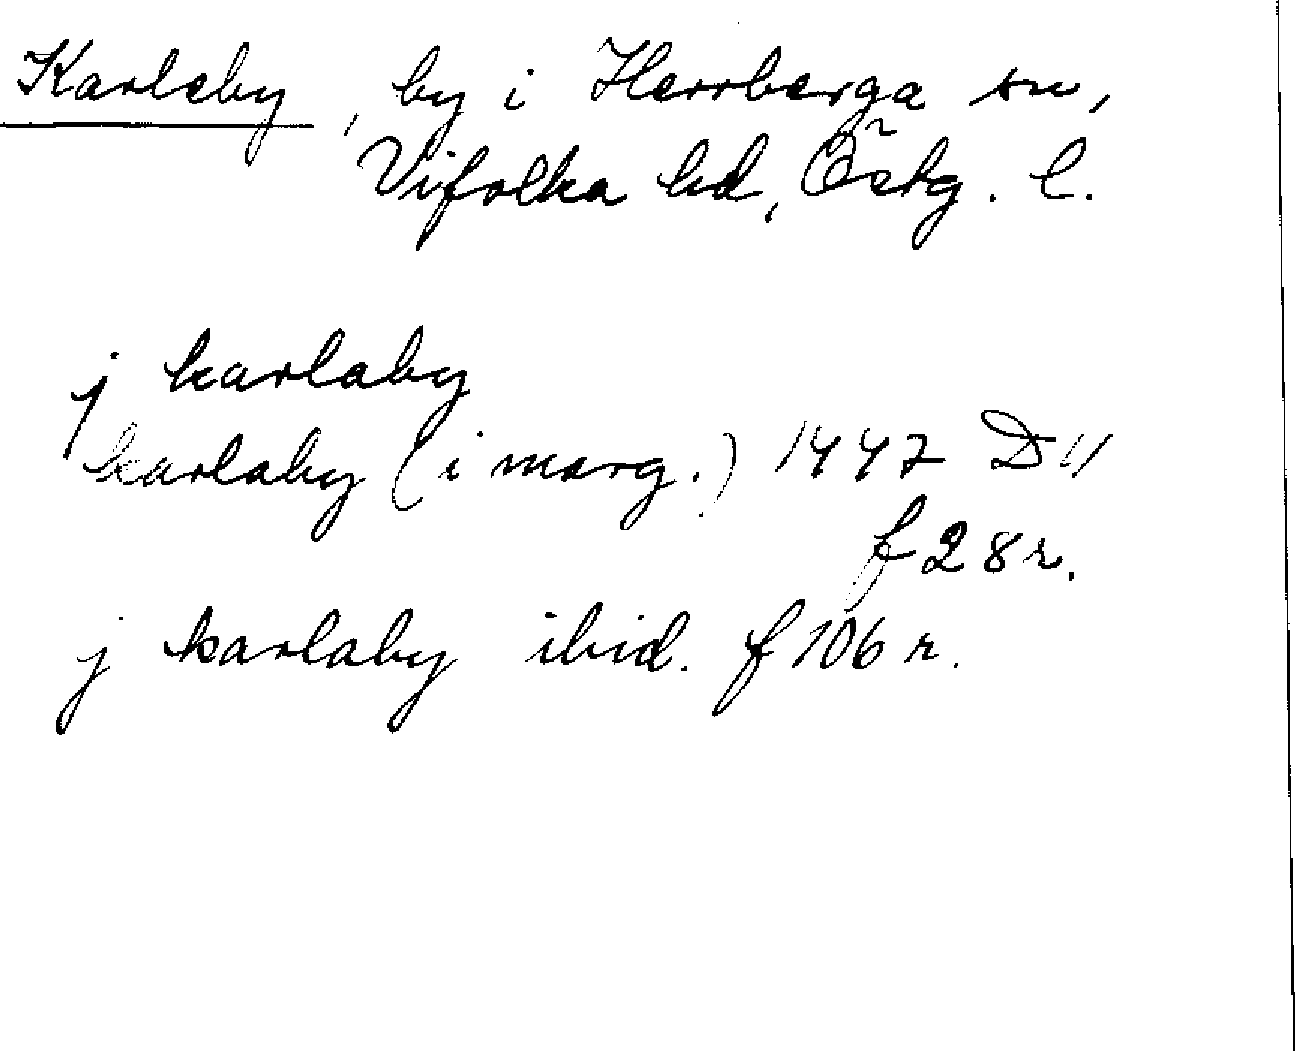 Karleby, by i Herrberga sn,
Vifolka hd, Östg. l.
j karlaby
karlaby (i marg.) 1447 D 11
f 28 r.
j karlaby ibid. f 106 r.